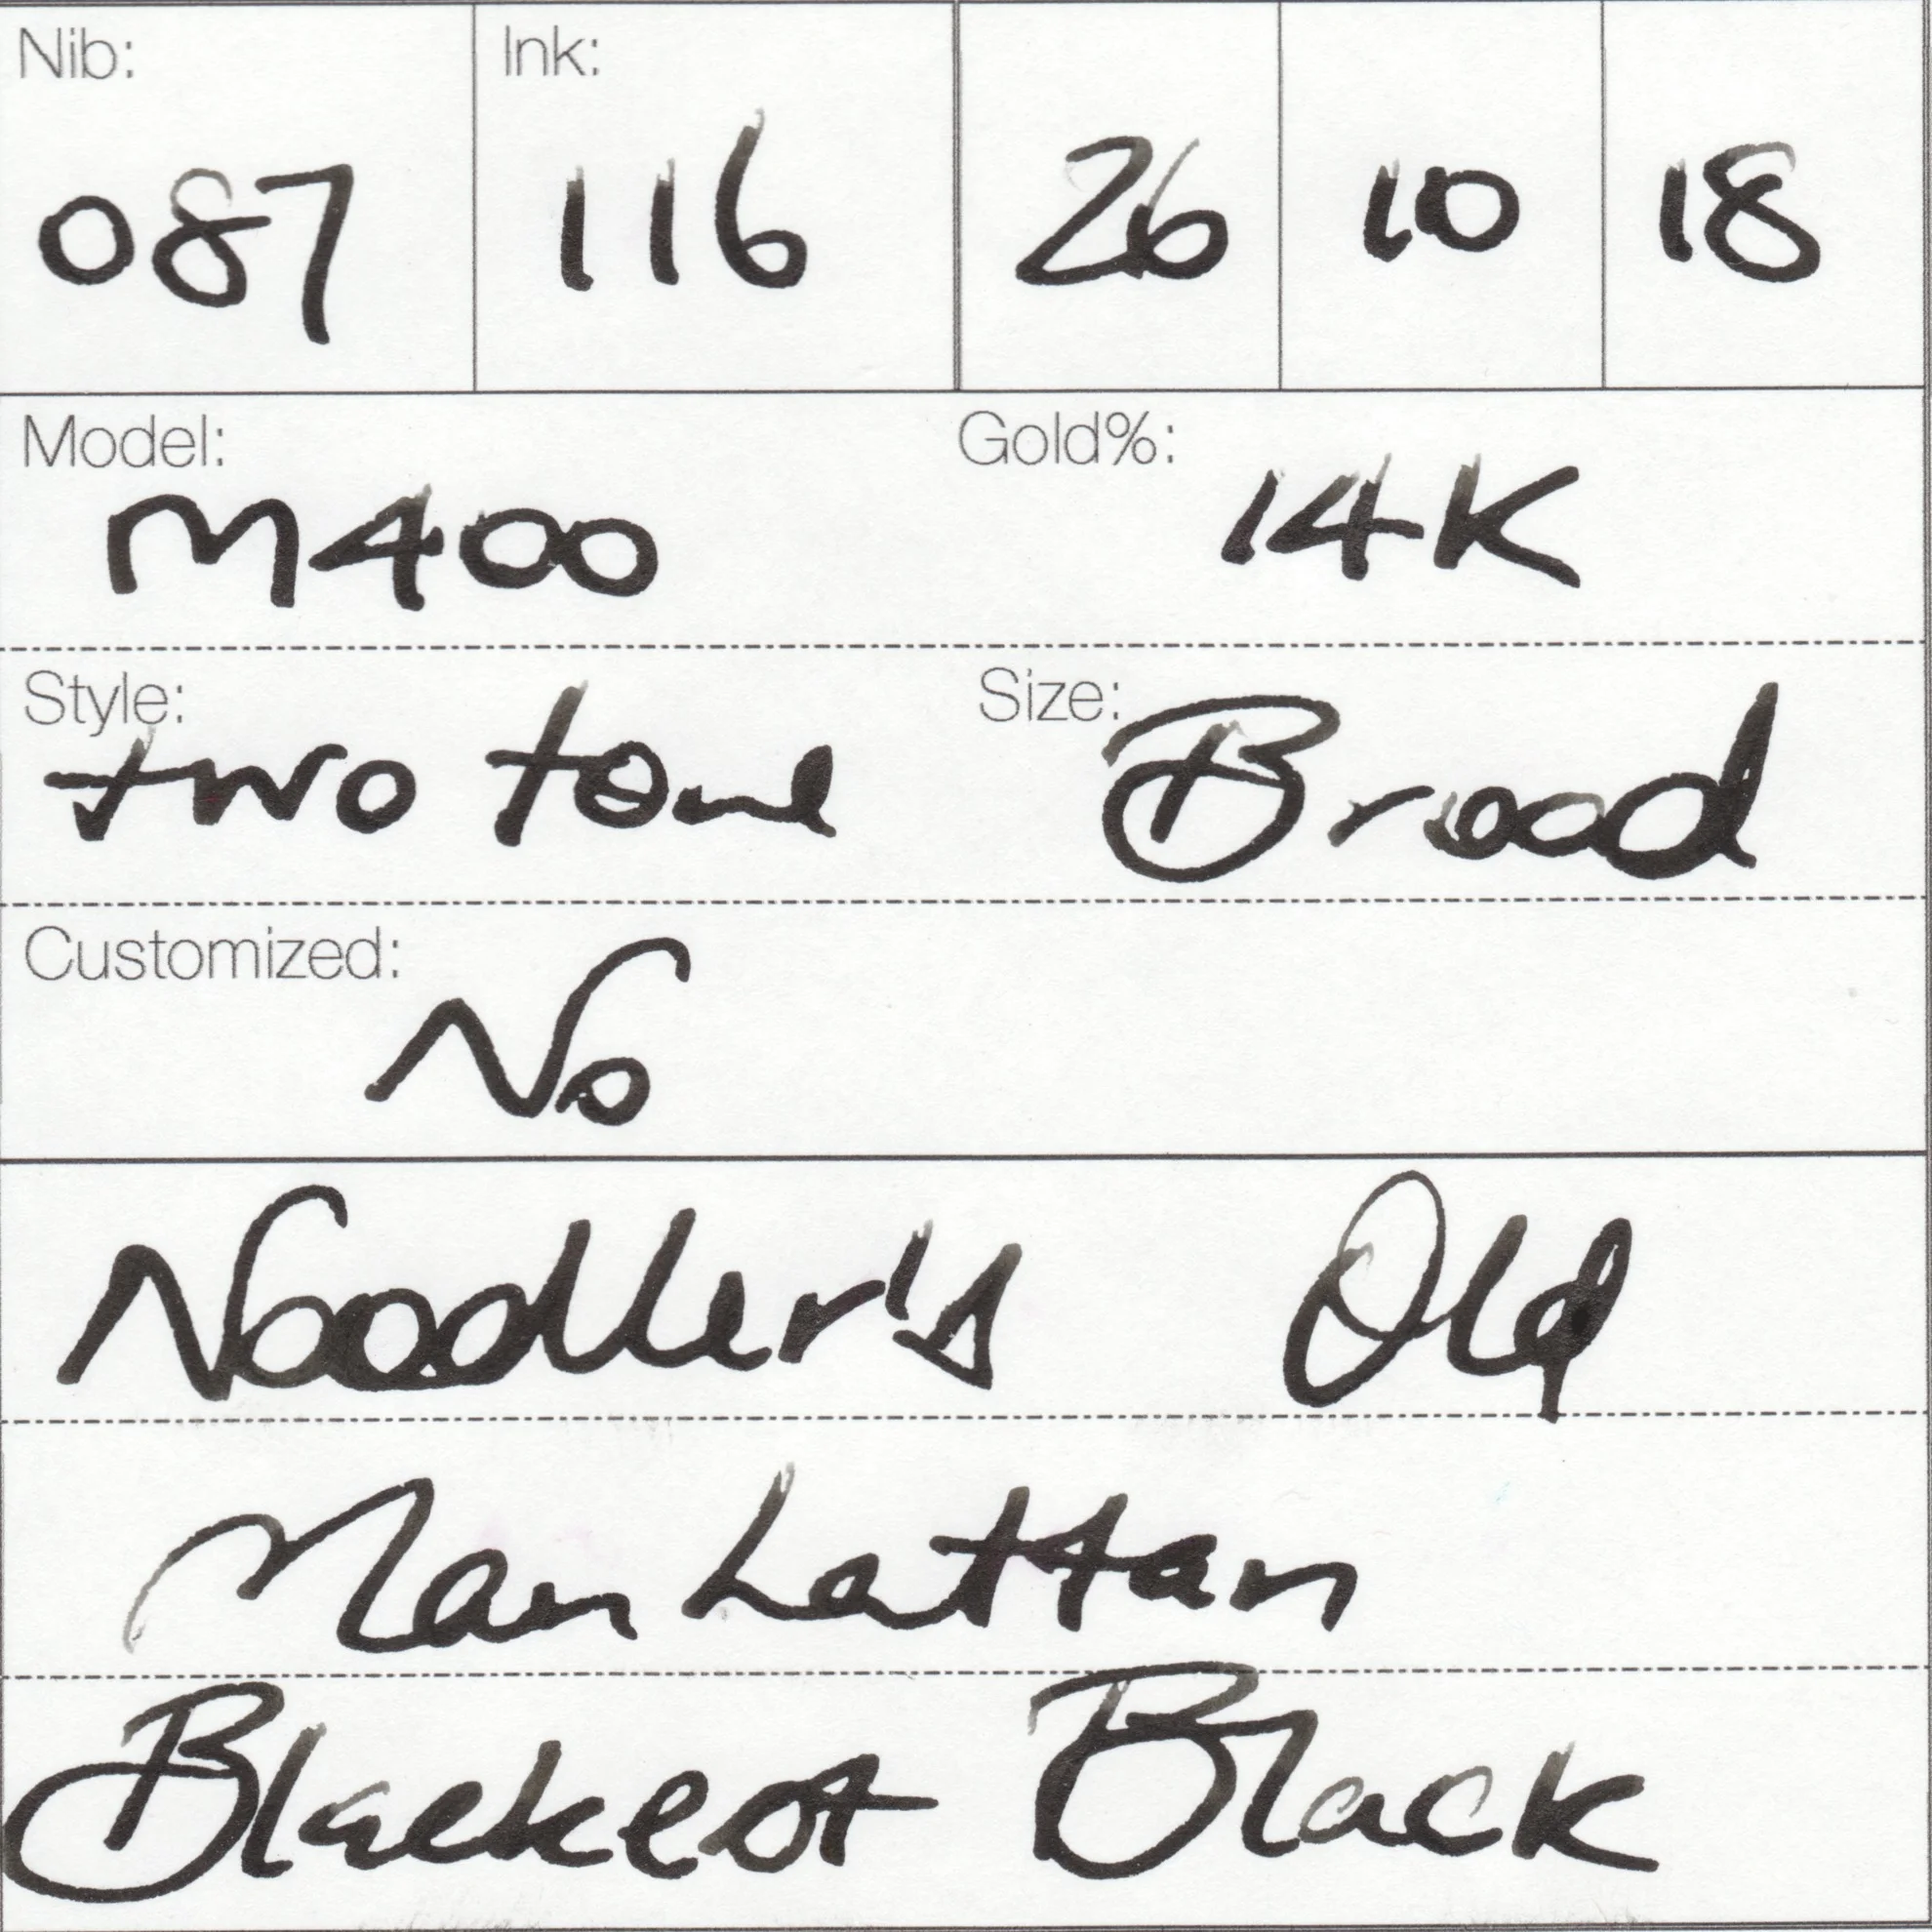 Nib: Ink:
087 116 26 10 18
Model: Gold%:
M400 14K
Style: Size:
two tone Broad
Customized:
No
Noodler's Old
Manhattan
Blackest Black